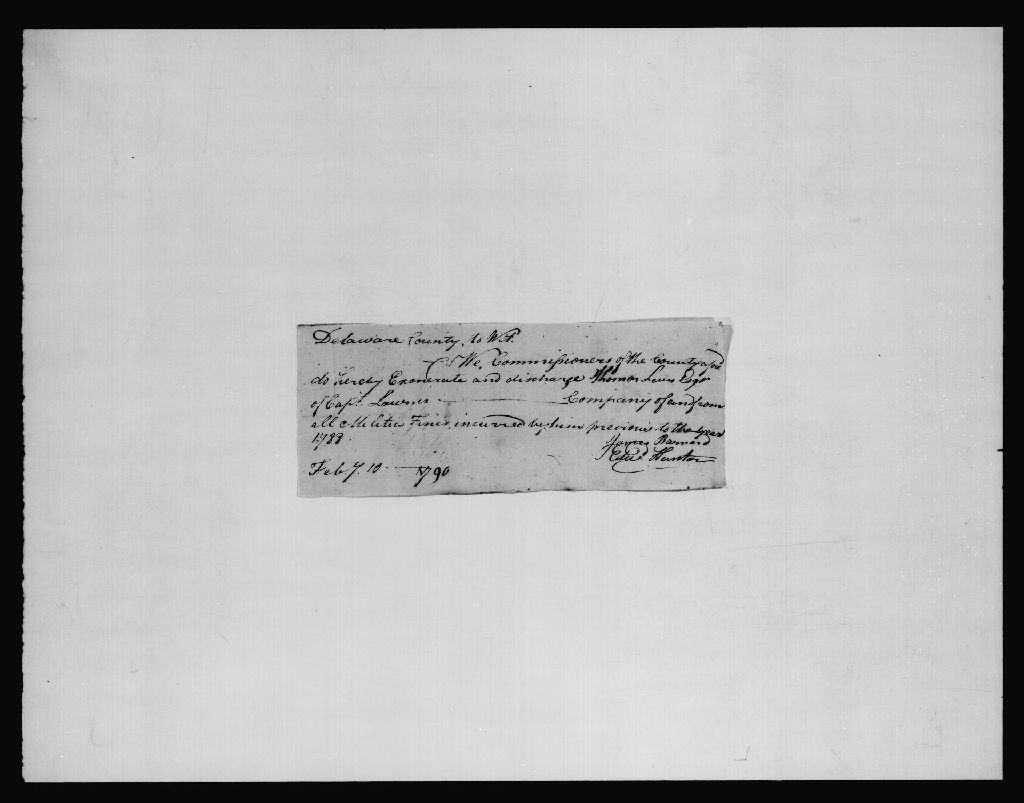 Delaware County, to Wit.
We, Commissioners of the County afsd
do hereby Exonerate and discharge Thomas Lewis Esqr
of Capt. Lawnes Company of and from
all Militia Fines, incurred by him previous to the year
1788
James Barnard
Edwd Hunter
Feby. 10 1790